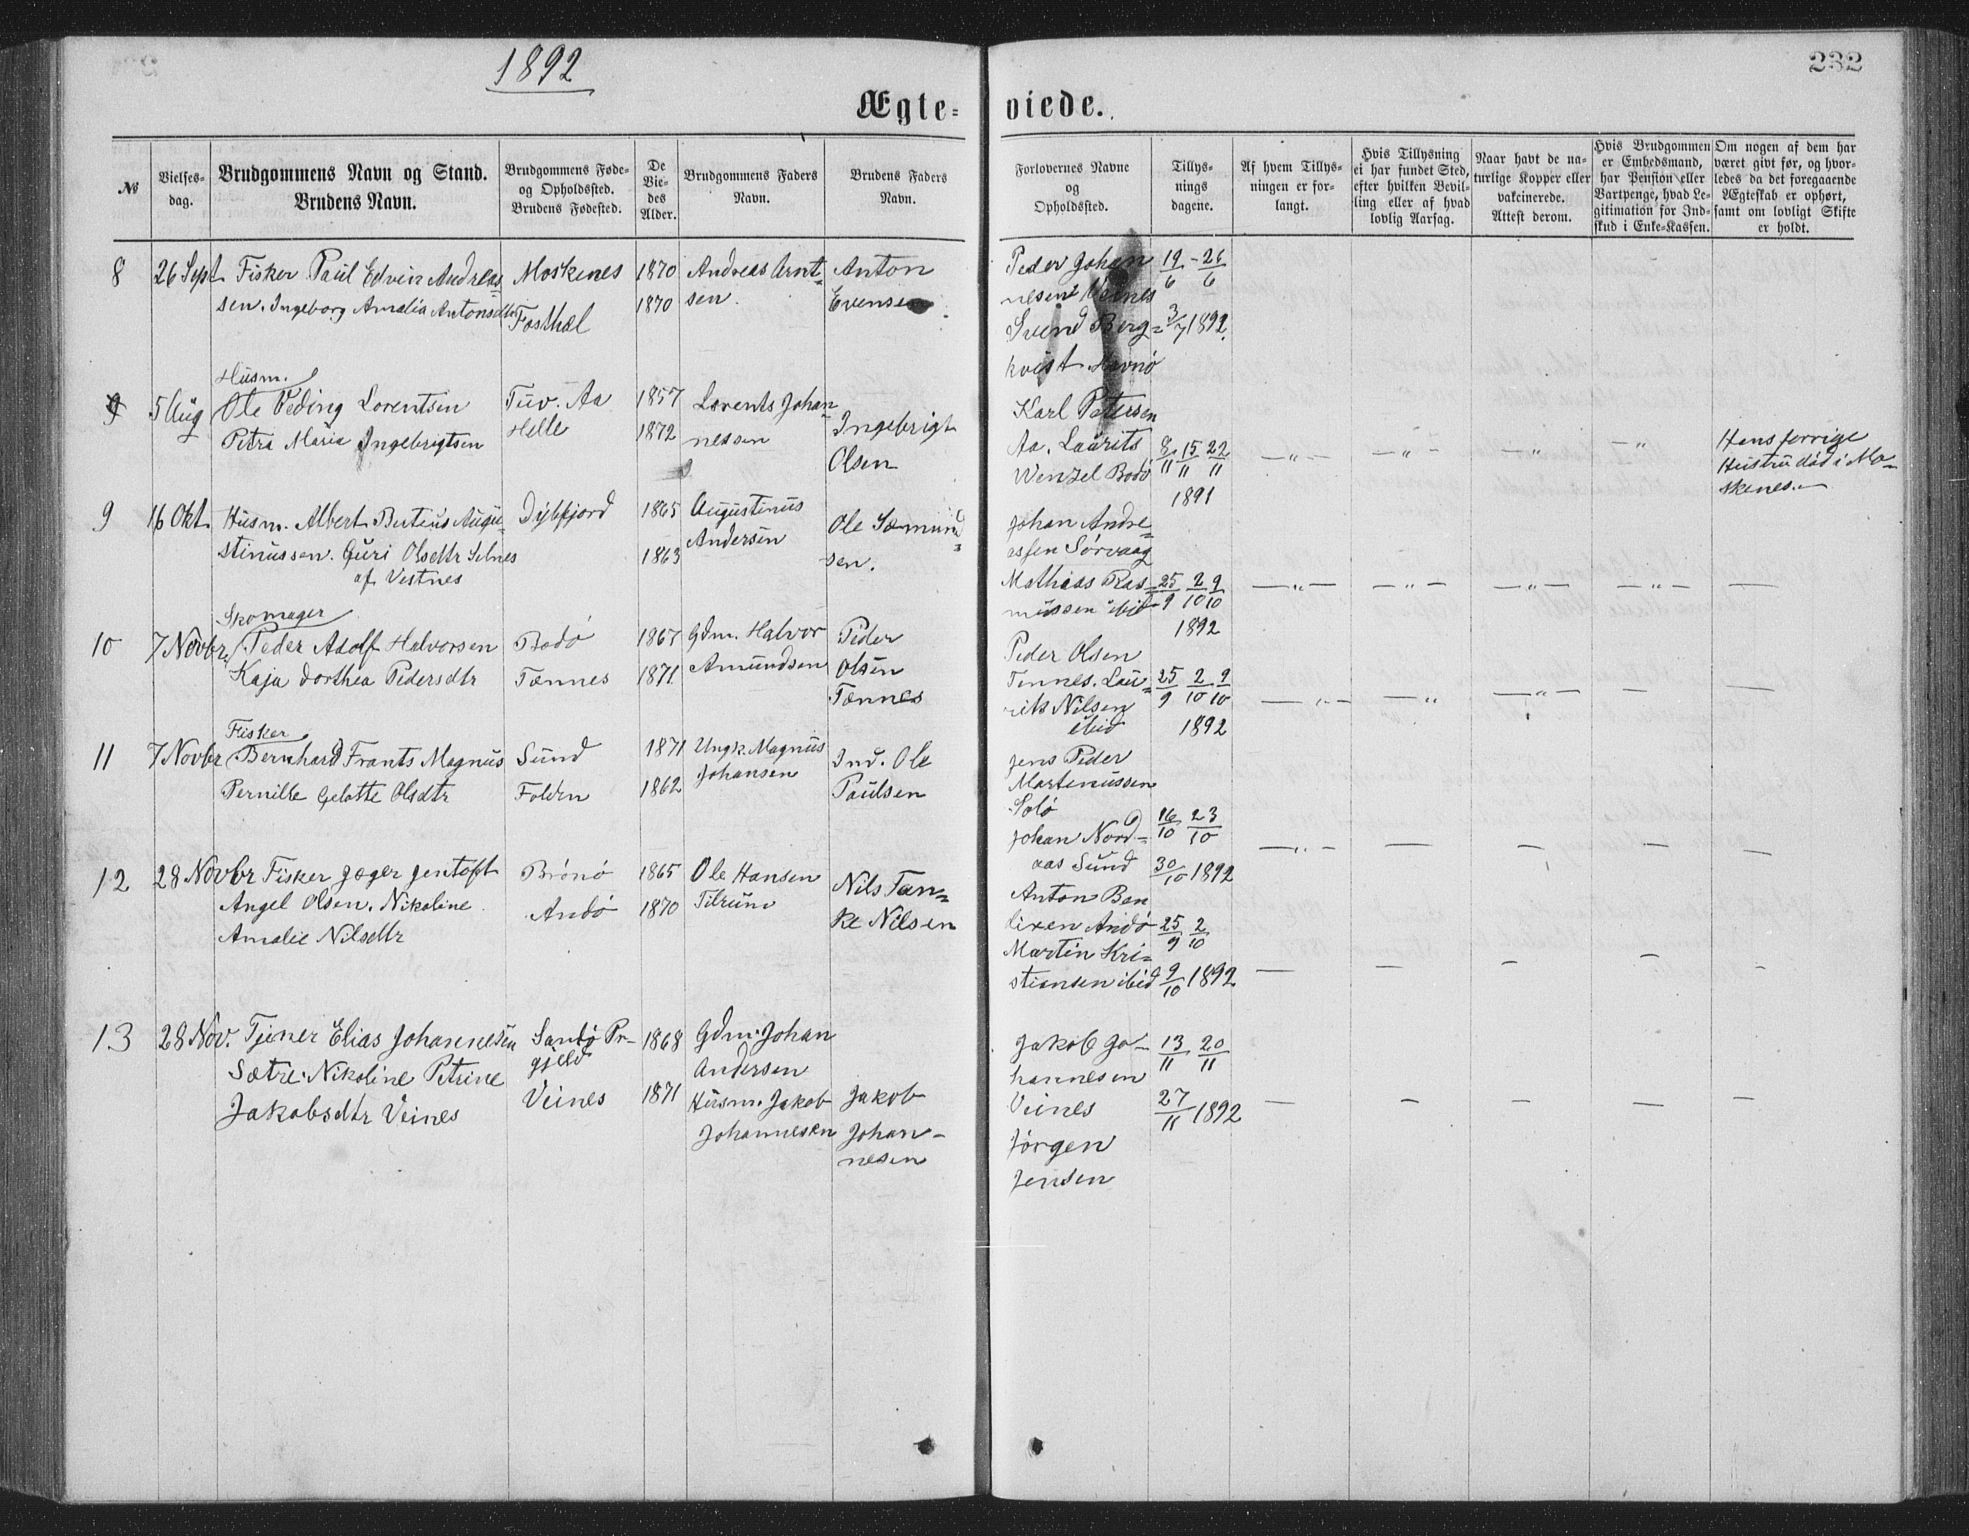 1892
232
Ægte-viede.
№
Vielses-
dag.
Brudgommens Navn og Stand.
Brudens Navn.
Brudgommens Føde-
og Opholdssted.
Brudens Fødested.
De
Vie-
des
Alder.
Brudgommens Faders
Navn.
Brudens Faders
Navn.
Forlovernes Navne
og
Opholdssted.
Tillys-
nings
dagene.
Af hvem Tillys-
ningen er for-
langt.
Hvis Tillysning
ei har fundet Sted,
efter hvilken Bevil-
ling eller af hvad
lovlig Aarsag.
Naar havt de na-
turlige Kopper eller
vakcinerede.
Attest derom.
Hvis Brudgommen
er Embedsmand,
har Pension eller
Vartpenge, hvad Le-
gitimation for Ind-
skud i Enke-Kassen.
Om nogen af dem har
været givt før, og hvor-
ledes da det foregaaende
Ægteskab er ophørt,
samt om lovligt Skifte
er holdt.
8
26 Sept
Fisker Paul Edvin Andreas-
sen. Ingeborg Amalia Antonsdtr
Moskenes
Fosthal
1870
1870
Andreas Arnt-
sen.
Anton
Evensen
Peder Johan
nesen
Svend Berg-
kvist Havnø
19/6 - 26/6
3/7 1892.
9
5 Aug
Husm.
Ole Peding Lorentsen
Petra Maria Ingebrigtsen
Tuv. Aa
Helle
1857
1872
Lorents Johan
nessen
Ingebrigt
Olsen
Karl Petersen
Aa. Laurits
Wenzel Bodø
8/11 15/11 22/11
1891
— „ —
— „ —
— „ —
— „ —
Hans forrige
Hustru død i Mo-
skenes.
9
16 Okt
Husm. Albert Butius Augu-
stinussen. Guri Olsdtr Selnes
af Vestnes
Dybfjord
1865
1863
Augustinus
Andersen
Ole Sæmund-
sen.
Johan Andre-
assen Sørvaag
Mathias Ras-
mussen ibid
25/9 2/10 9/10
1892
— „ —
— „ —
— „ —
—
—
10
7 Novbr
Skomager
Peder Adolf Halvorsen
Kaja Dorthea Pedersdtr
Bodø
Tønnes
1867
1871
Gdm. Halvor
Amundsen
Peder
Olsen
Tønnes
Peder Olsen
Tønnes. Lau-
rits Nilsen
ibid
25/9 2/10 9/10
1892
— „ —
— „
— „ —
—
—
11
7 Novbr
Fisker
Bernhard Frants Magnus
Pernille Gelotte Olsdtr
Sund
Folden
1871
1862
Ungk. Magnus
Johansen
Ind. Ole
Paulsen
Jens Peder
Martinussen
Solø
Johan Nord-
aas Sund
16/10 23/10
30/10 1892
— „ —
—
—
—
—
12
28 Novbr
Fisker Jæger Jentoft
Angel Olsen. Nikoline
Amalie Nilsdtr
Brønø
Andø
1865
1870
Ole Hansen
Tilrum
Nils Tan-
ke Nilsen
Anton Ben
dixen Andø
Martin Kri-
stiansen ibid
25/9 2/10
9/10 1892
—
—
—
—
—
13
28 Nov.
Tjener Elias Johannesen
Sætre. Nikoline Petrine
Jakobsdtr Veines
Sandø Pr-
gjeld
Veines
1868
1871
Gdm. Johan
Andersen
Husm. Jakob
Johannesen
Jakob
Johan-
nesen
Jakob Jo-
hannesen
Veines
Jørgen
Jensen
13/11 20/11
27/11 1892
—
—
—
—
—